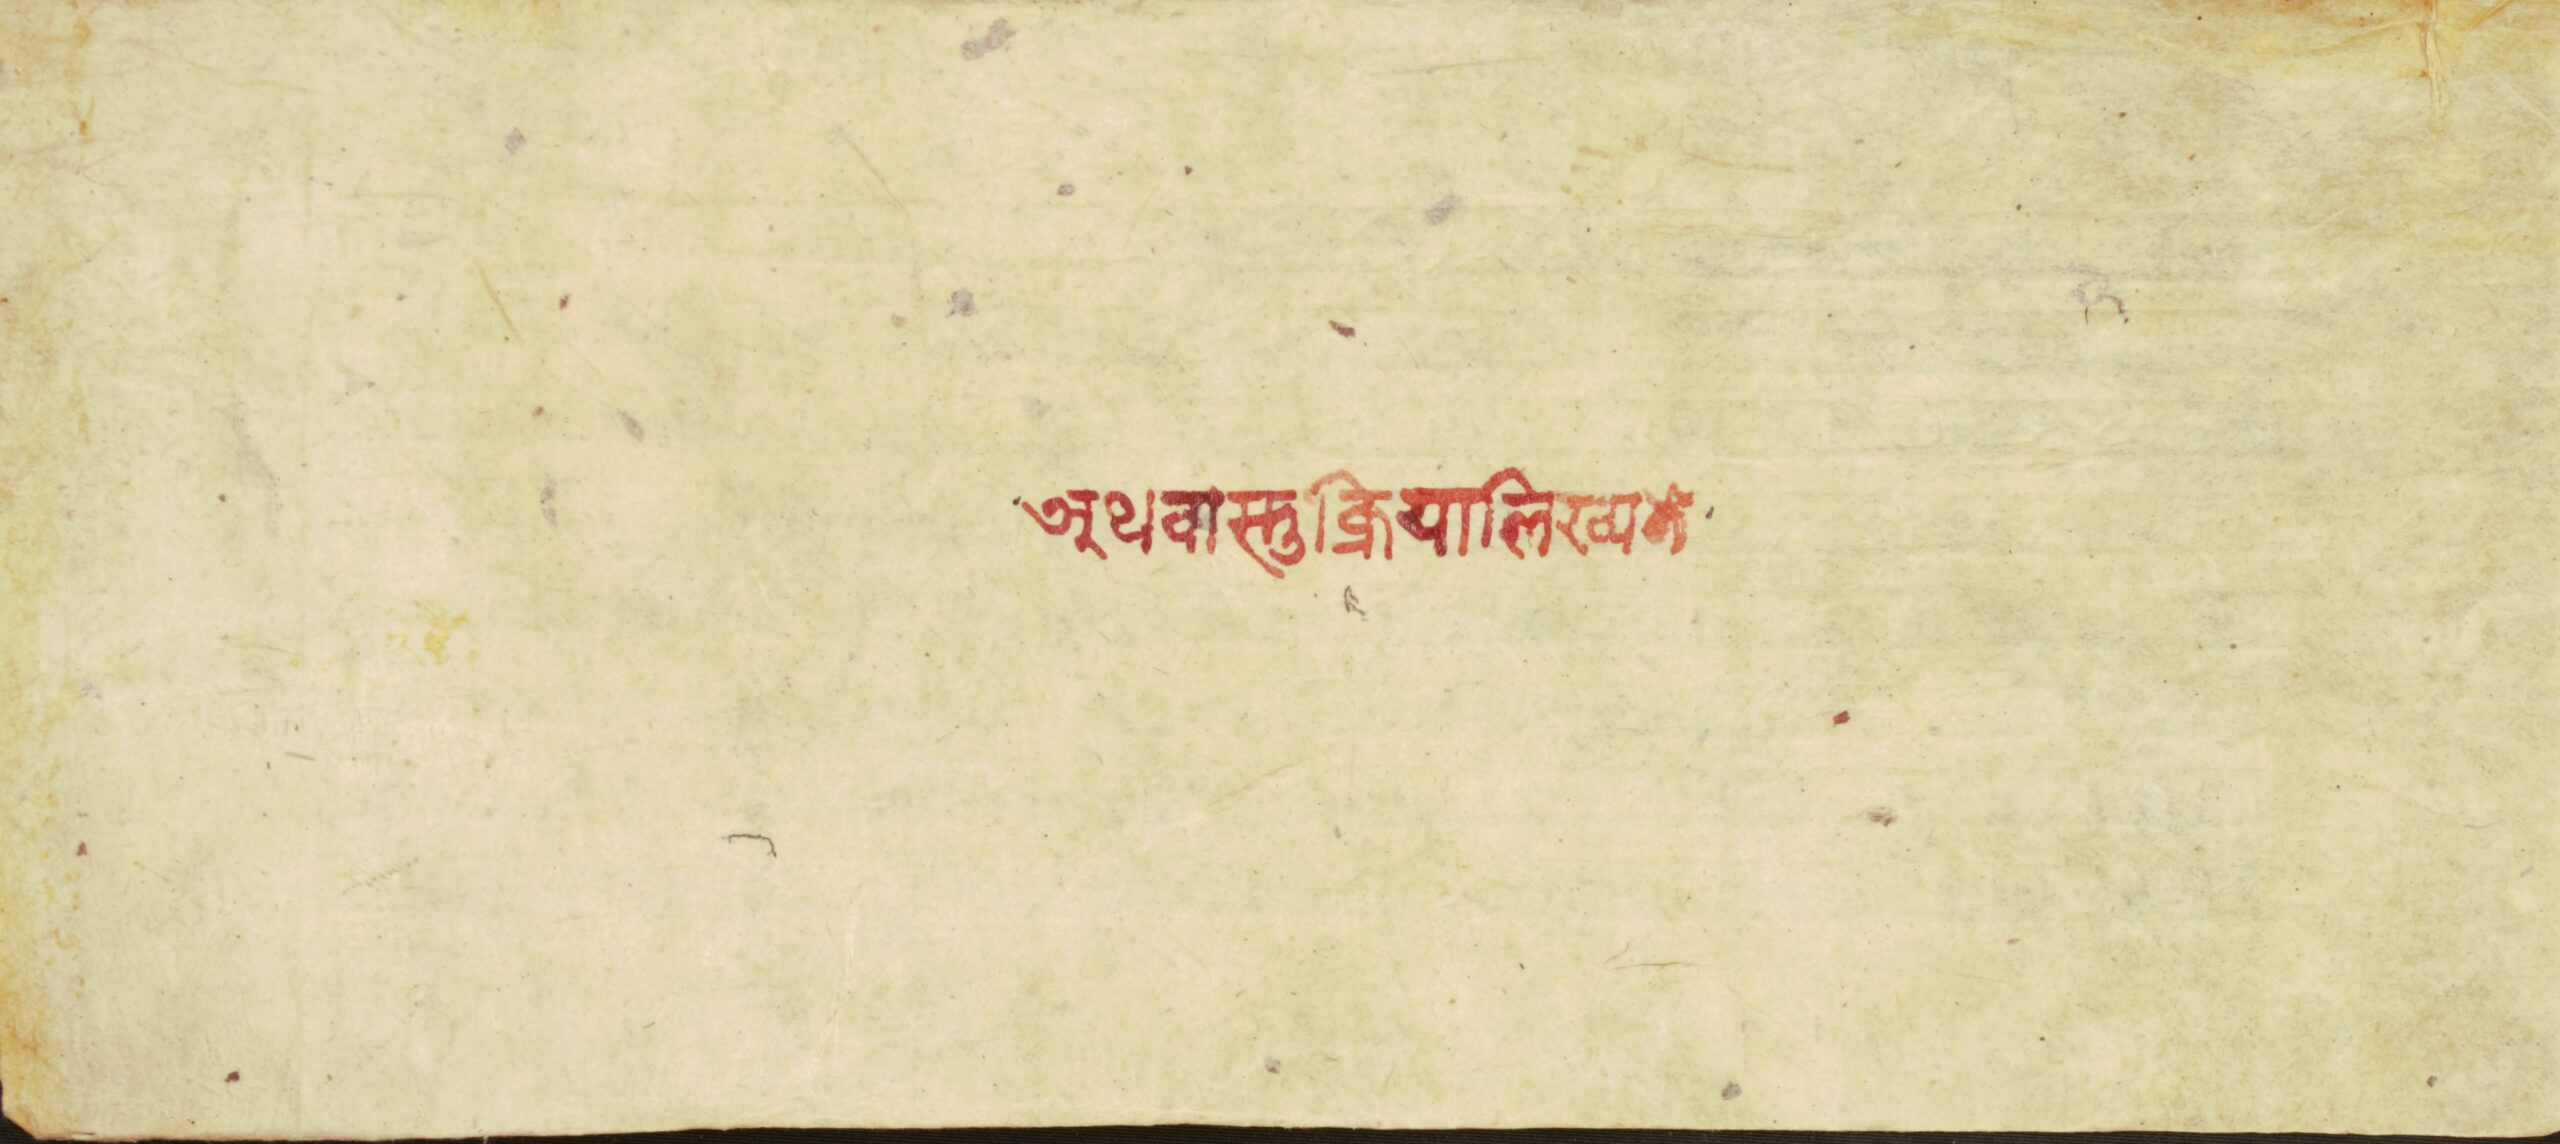 अथवास्तुक्रियालिख्यते